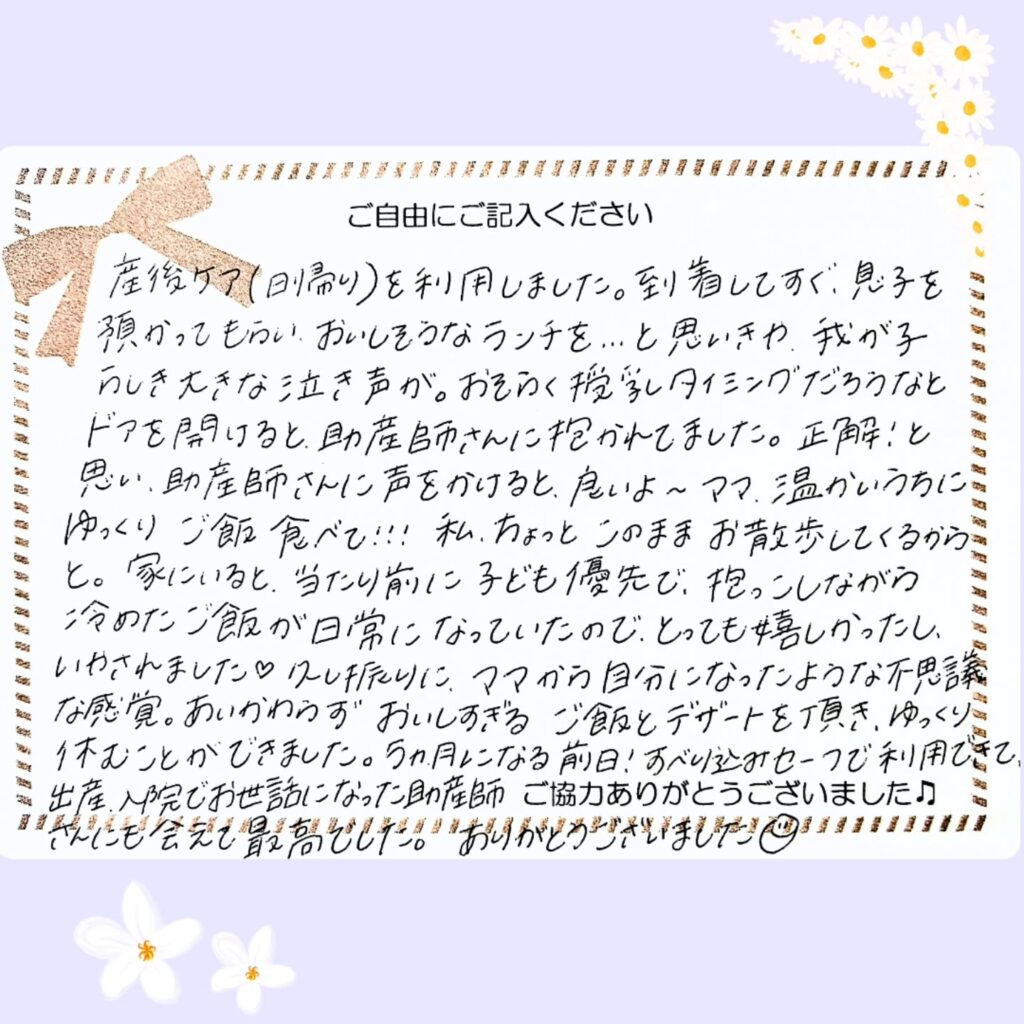 ご自由にご記入ください
産後ケア(日帰り)を利用しました。到着してすぐ、息子を
預かってもらい、おいしそうなランチを…と思いきや、我が子
らしき大きな泣き声が。おそらく授乳タイミングだろうなと
ドアを開けると、助産師さんに抱かれてました。正解!と
思い、助産師さんに声をかけると、良いよ～ママ、温かいうちに
ゆっくりご飯食べて!!!私、ちょっとこのままお散歩してくるから
と。家にいると、当たり前に子ども優先で、抱っこしながら
冷めたご飯が日常になっていたので、とっても嬉しかったし、
いやされました♡久し振りに、ママから自分になったような不思議
な感覚。あいかわらずおいしすぎるご飯とデザートを頂き、ゆっくり
休むことができました。5ヵ月になる前日!すべり込みセーフで利用できて、
出産、入院でお世話になった助産師
ご協力ありがとうございました♫
さんにも会えて最高でした。ありがとうございました☺